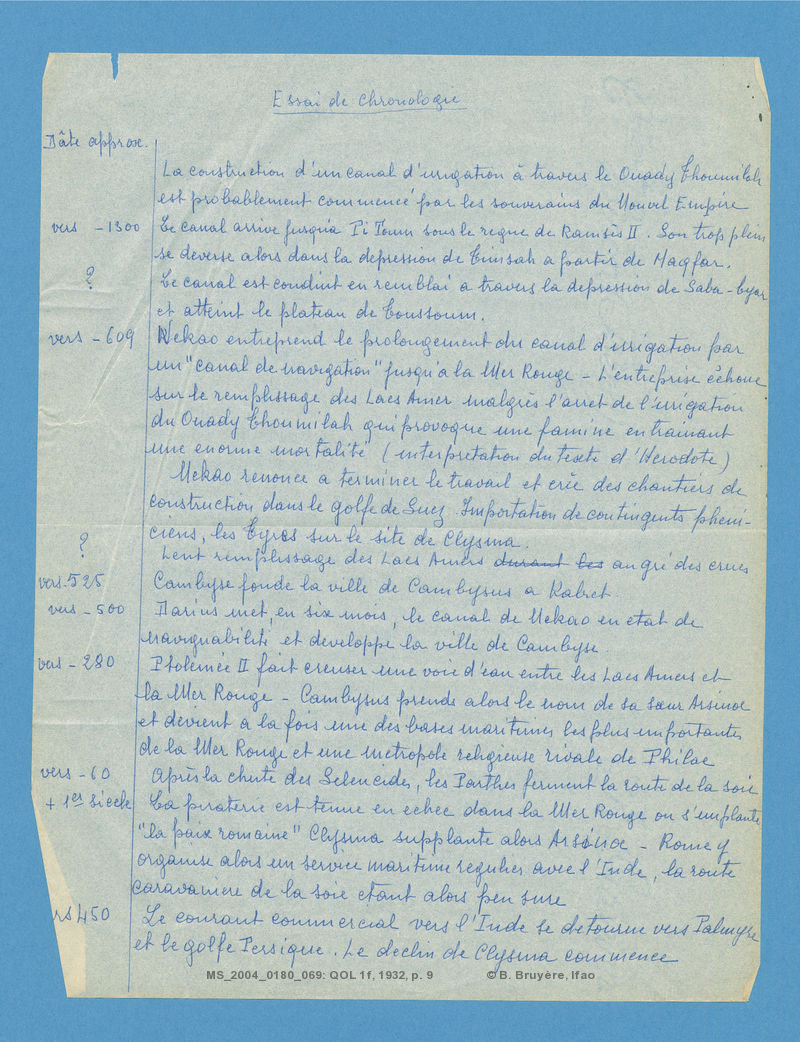 Essai de chronologie
Dâte approx.
La construction d'un canal d'irrigation à travers le Ouady Thoumilah
est probablement commencé par les souverains du Nouvel Empire
vers -1300 Le canal arrive jusqu'à Pi Toum sous le regne de Ramsès II. Son trop plein
se deverse alors dans la depression de Timsah a partir de Magfar.
? Le canal est conduit en remblai a travers la depression de Saba-byar
et atteint le plateau de Toussoum.
vers -609 Nekao entreprend le prolongement du canal d'irrigation par
un "canal de navigation" jusqu'a la Mer Rouge - L'entreprise échoue
sur le remplissage des Lacs Amer malgrès l'arret de l'irrigation
du Ouady Thoumilah qui provoque une famine entrainant
une enorme mortalité (interpretation du texte d'Herodote)
Nekao renonce a terminer le travail et crée des chantiers de
construction dans le golfe de Suez. Importation de contingents pheni-
ciens, les Tyros sur le site de Clysma.
? Lent remplissage des Lacs Amers durant les au gré des crues
vers.525 Cambyse fonde la ville de Cambysus a Kabret.
vers -500 Darius met, en six mois, le canal de Nekao en etat de
navignabilité et developpe la ville de Cambyse.
vers -280 Ptolemée II fait creuser une voie d'eau entre les Lacs Amers et
la Mer Rouge - Cambysus prends alors le nom de sa sœur Arsinoe
et devient a la fois une des bases maritimes les plus importantes
de la Mer Rouge et une metropole religieuse rivale de Philae
vers -60 Après la chute des Seleucides, les Parthes ferment la route de la soie
+ 1er siècle La piraterie est tenue en echec dans la Mer Rouge ou s'implante
"la paix romaine" Clysma supplante alors Arsinoe - Rome y
organise alors un service maritime regulier avec l'Inde, la route
caravaniere de la soie etant alors peu sure
rs 450 Le courant commercial vers l'Inde se detourne vers Palmyre
et le golfe Persique. Le declin de Clysma commence
MS_2004_0180_069: QOL 1f, 1932, p. 9 © B. Bruyère, Ifao